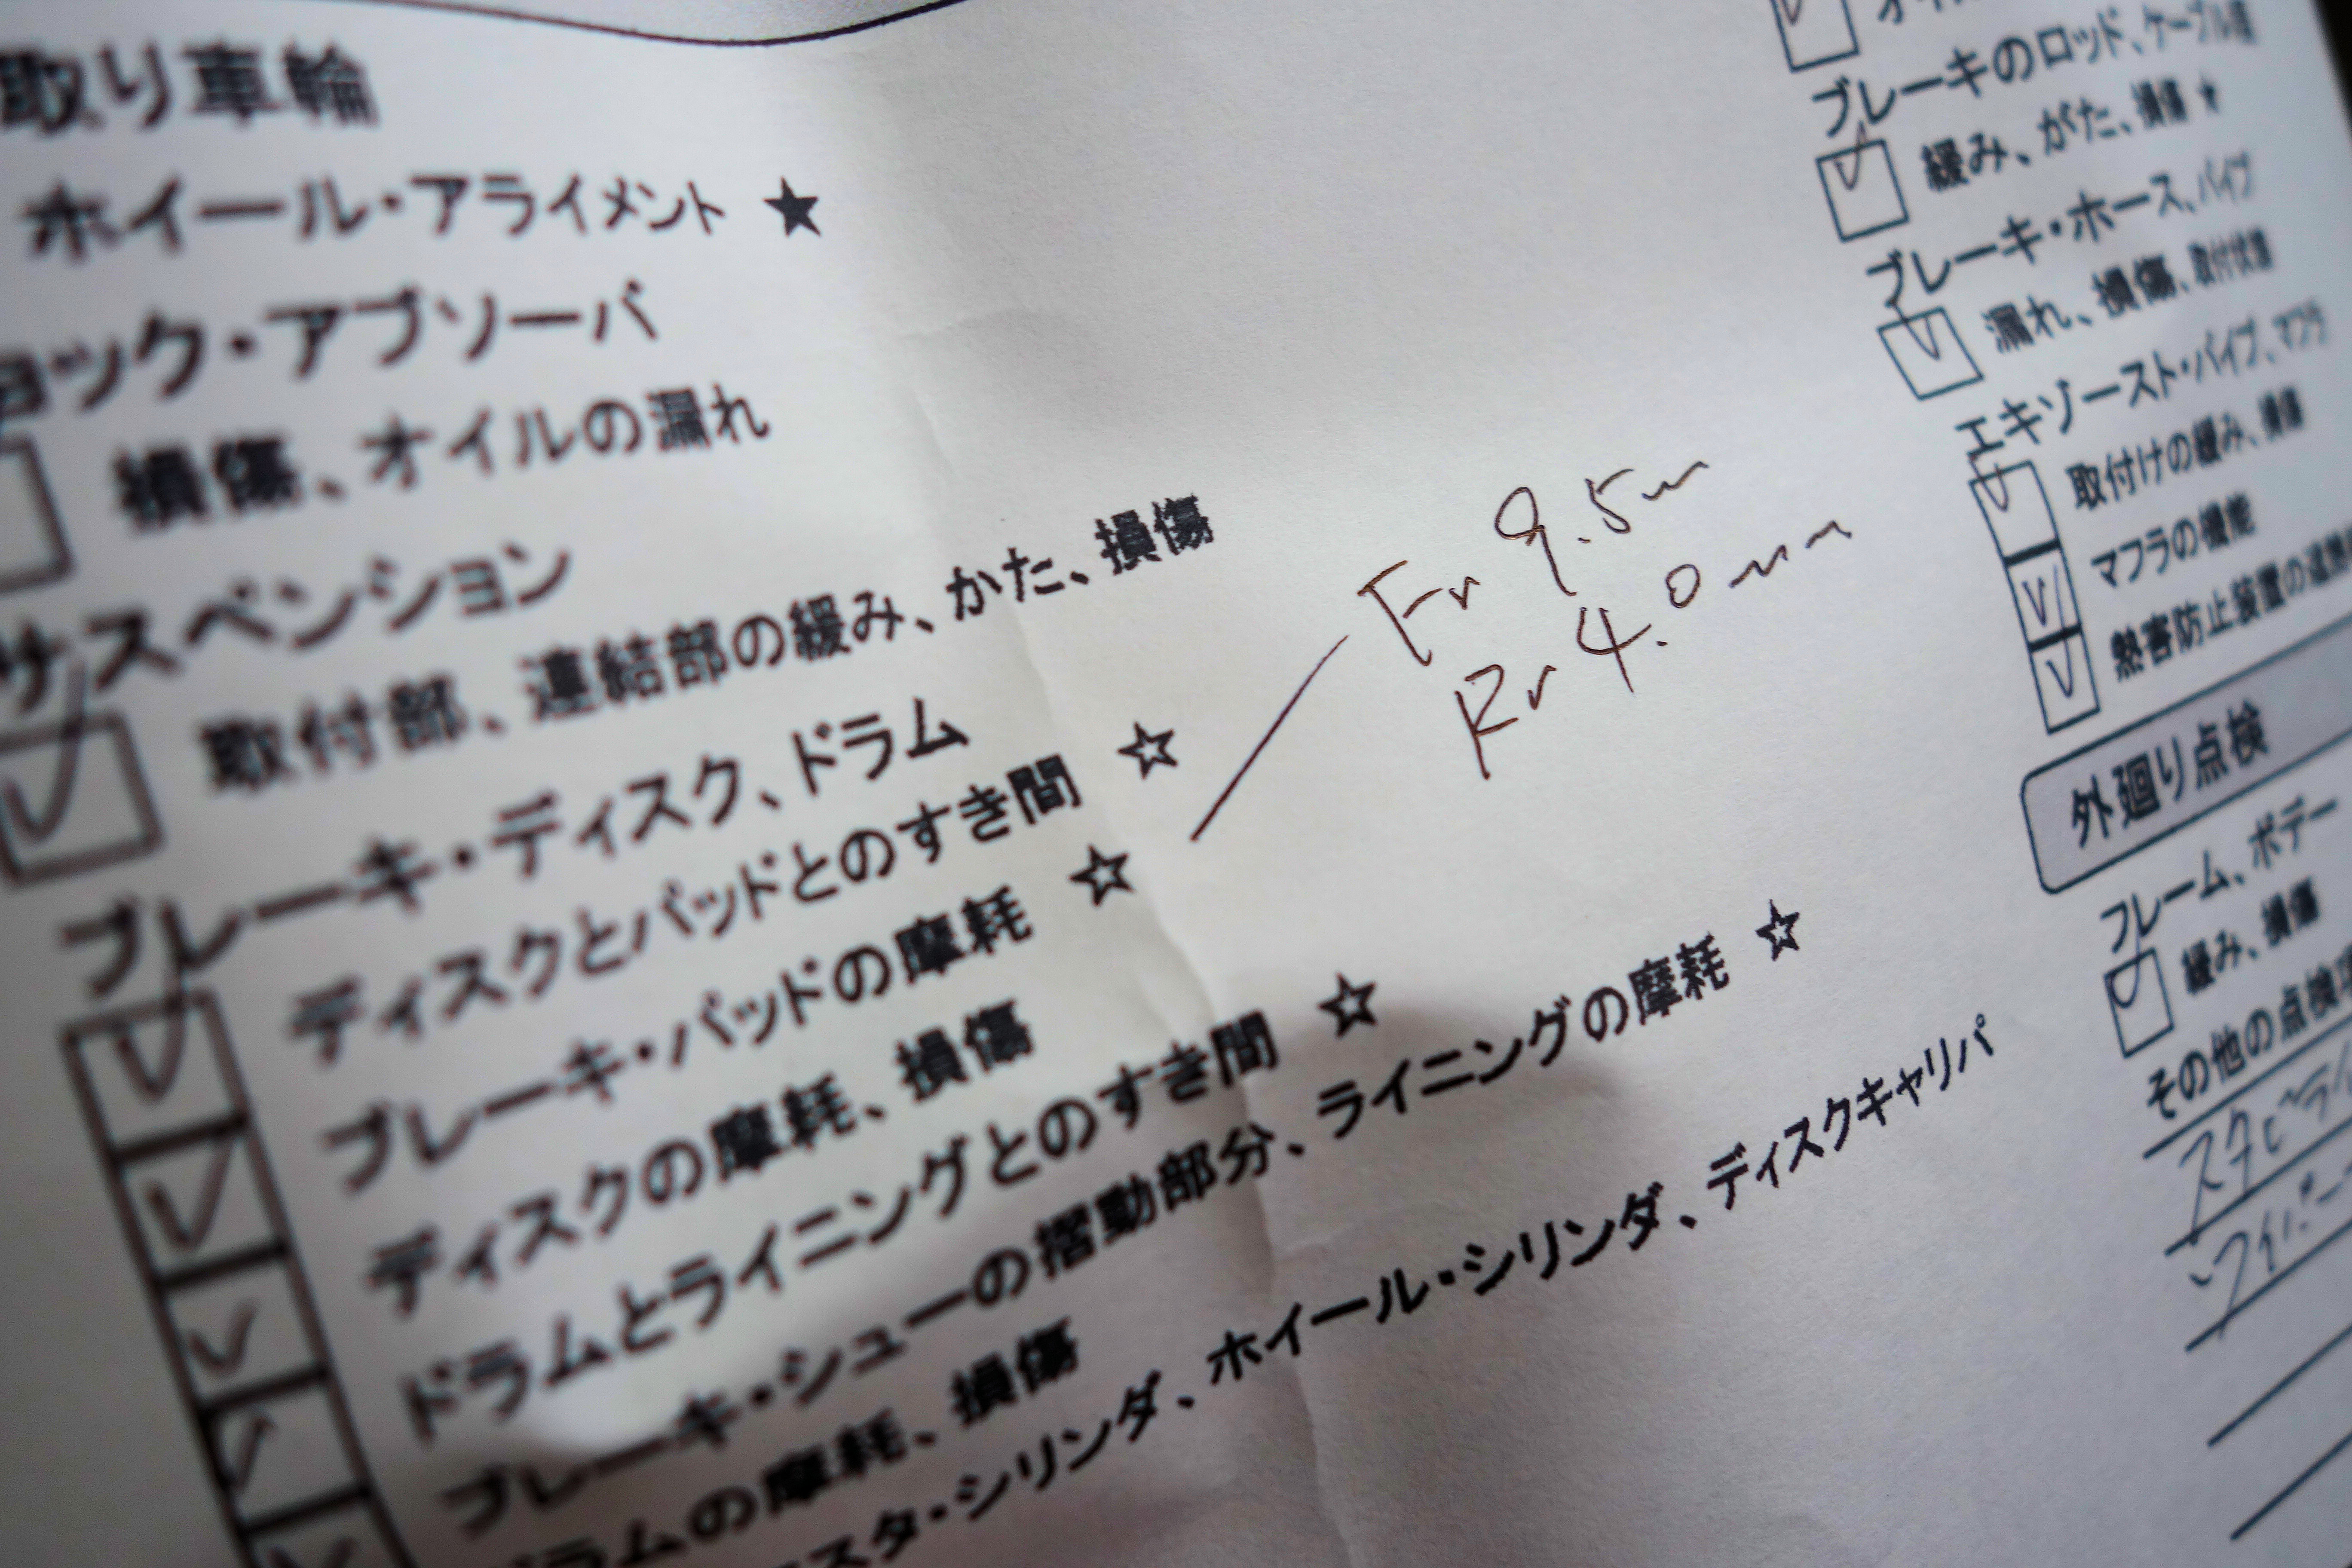 取り車輪
ホイール・アライメント ★
ョック・アブソーバ
損傷、オイルの漏れ
サスペンション
取付部、連結部の緩み、がた、損傷
ブレーキ・ディスク、ドラム
ディスクとパッドとのすき間 ☆
ブレーキ・パッドの摩耗 ☆
Fr 9.5m
Rr 4.0mm
ディスクの摩耗、損傷
ドラムとライニングとのすき間 ☆
ブレーキ・シューの摺動部分、ライニングの摩耗 ☆
ドラムの摩耗、損傷
スタ・シリンダ、ホイール・シリンダ、ディスクキャリパ
ブレーキのロッド、ケーブル
緩み、がた、損傷 ★
ブレーキ・ホース、パイプ
漏れ、損傷、取付状態
エキゾースト・パイプ、マフラ
取付けの緩み、損傷
マフラの機能
熱害防止装置の遮熱
外廻り点検
フレーム、ボデー
緩み、損傷
その他の点検項
スタビライ
ワイパー